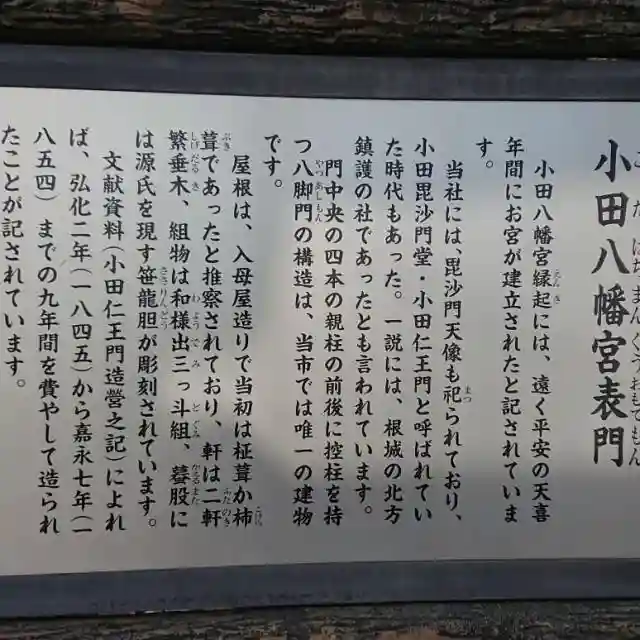 小田八幡宮表門
小田八幡宮縁起には、遠く平安の天喜
年間にお宮が建立されたと記されていま
す。
当社には、毘沙門天像も祀られており、
小田毘沙門堂・小田仁王門と呼ばれてい
た時代もあった。一説には、根城の北方
鎮護の社であったとも言われています。
門中央の四本の親柱の前後に控柱を持
つ八脚門の構造は、当市では唯一の建物
です。
屋根は、入母屋造りで当初は柾葺か柿
葺であったと推察されており、軒は二軒
繁垂木、組物は和様出三っ斗組、蟇股に
は源氏を現す笹龍胆が彫刻されています。
文献資料(小田仁王門造営之記)によれ
ば、弘化二年(一八四五)から嘉永七年(一
八五四)までの九年間を費やして造られ
たことが記されています。